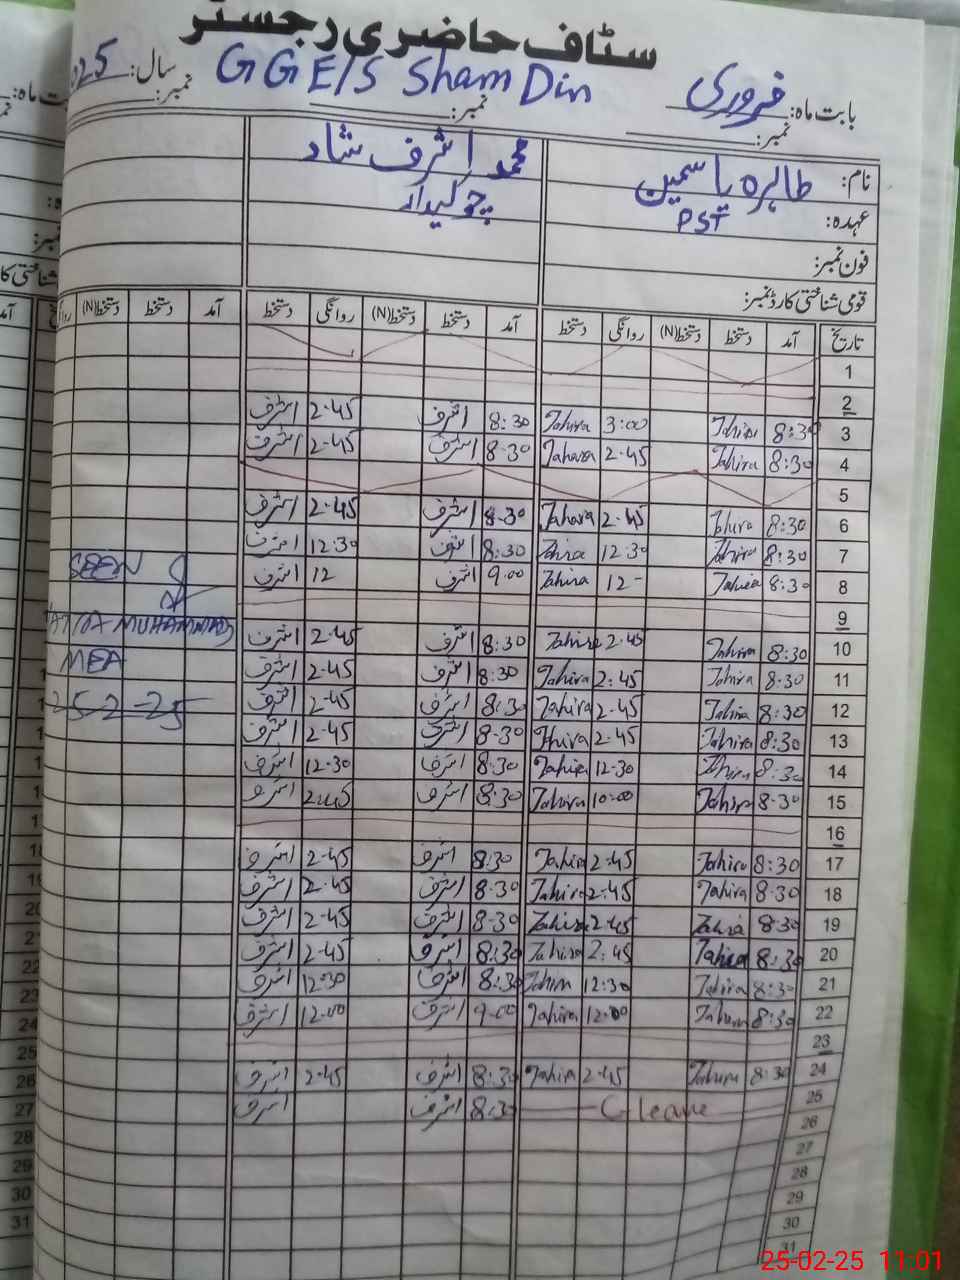 سٹاف حاضری رجسٹر
بابت ماہ: فروری GGE/S Sham Din سال: 025
نمبر: نمبر: نمبر:
نام: طاہرہ یاسمین محمد اشرف شاد
عہدہ: PST چوکیدار
فون نمبر:
قومی شناختی کارڈ نمبر:
تاریخ آمد دستخط دستخط(N) روانگی دستخط آمد دستخط دستخط(N) روانگی دستخط آمد دستخط دستخط(N)
1
2
3 8:30 Tahira 3:00 Tahira 8:30 اشرف 2-45 اشرف
4 8:30 Tahira 2-45 Tahara 8-30 اشرف 2-45 اشرف
5
6 8:30 Tahira 2-45 Tahara 8-30 اشرف 2-45 اشرف
7 8:30 Tahira 12-30 Tahira 8:30 اشرف 12:30 اشرف
8 8:30 Tahira 12- Tahira 9.00 اشرف 12 اشرف
9
10 8:30 Tahira 2-45 Tahira 8:30 اشرف 2-45 اشرف
11 8:30 Tahira 2:45 Tahira 8:30 اشرف 2-45 اشرف
12 8:30 Tahira 2-45 Tahira 8:30 اشرف 2-45 اشرف
13 8:30 Tahira 2-45 Thira 8-30 اشرف 2-45 اشرف
14 8:30 Tahira 12-30 Tahira 8:30 اشرف 12-30 اشرف
15 8-30 Tahira 10:00 Tahira 8:30 اشرف 2:45 اشرف
16
17 8:30 Tahira 2-45 Tahira 8:30 اشرف 2-45 اشرف
18 8:30 Tahira 2-45 Tahira 8-30 اشرف 2-45 اشرف
19 8:30 Tahira 2-45 Tahira 8-30 اشرف 2-45 اشرف
20 8:30 Tahira 2-45 Tahira 8:30 اشرف 2-45 اشرف
21 8:30 Tahira 12:30 Tahira 8:30 اشرف 12:30 اشرف
22 8:30 Tahira 12:00 Tahira 9-00 اشرف 12:00 اشرف
23
24 8:30 Tahira 2-45 Tahira 8:30 اشرف 2-45 اشرف
25 C-leave 8:30 اشرف اشرف
26
27
28
29
30
31
SEEN
MUHAMMAD
MEA
25-2-25
25-02-25 11:01